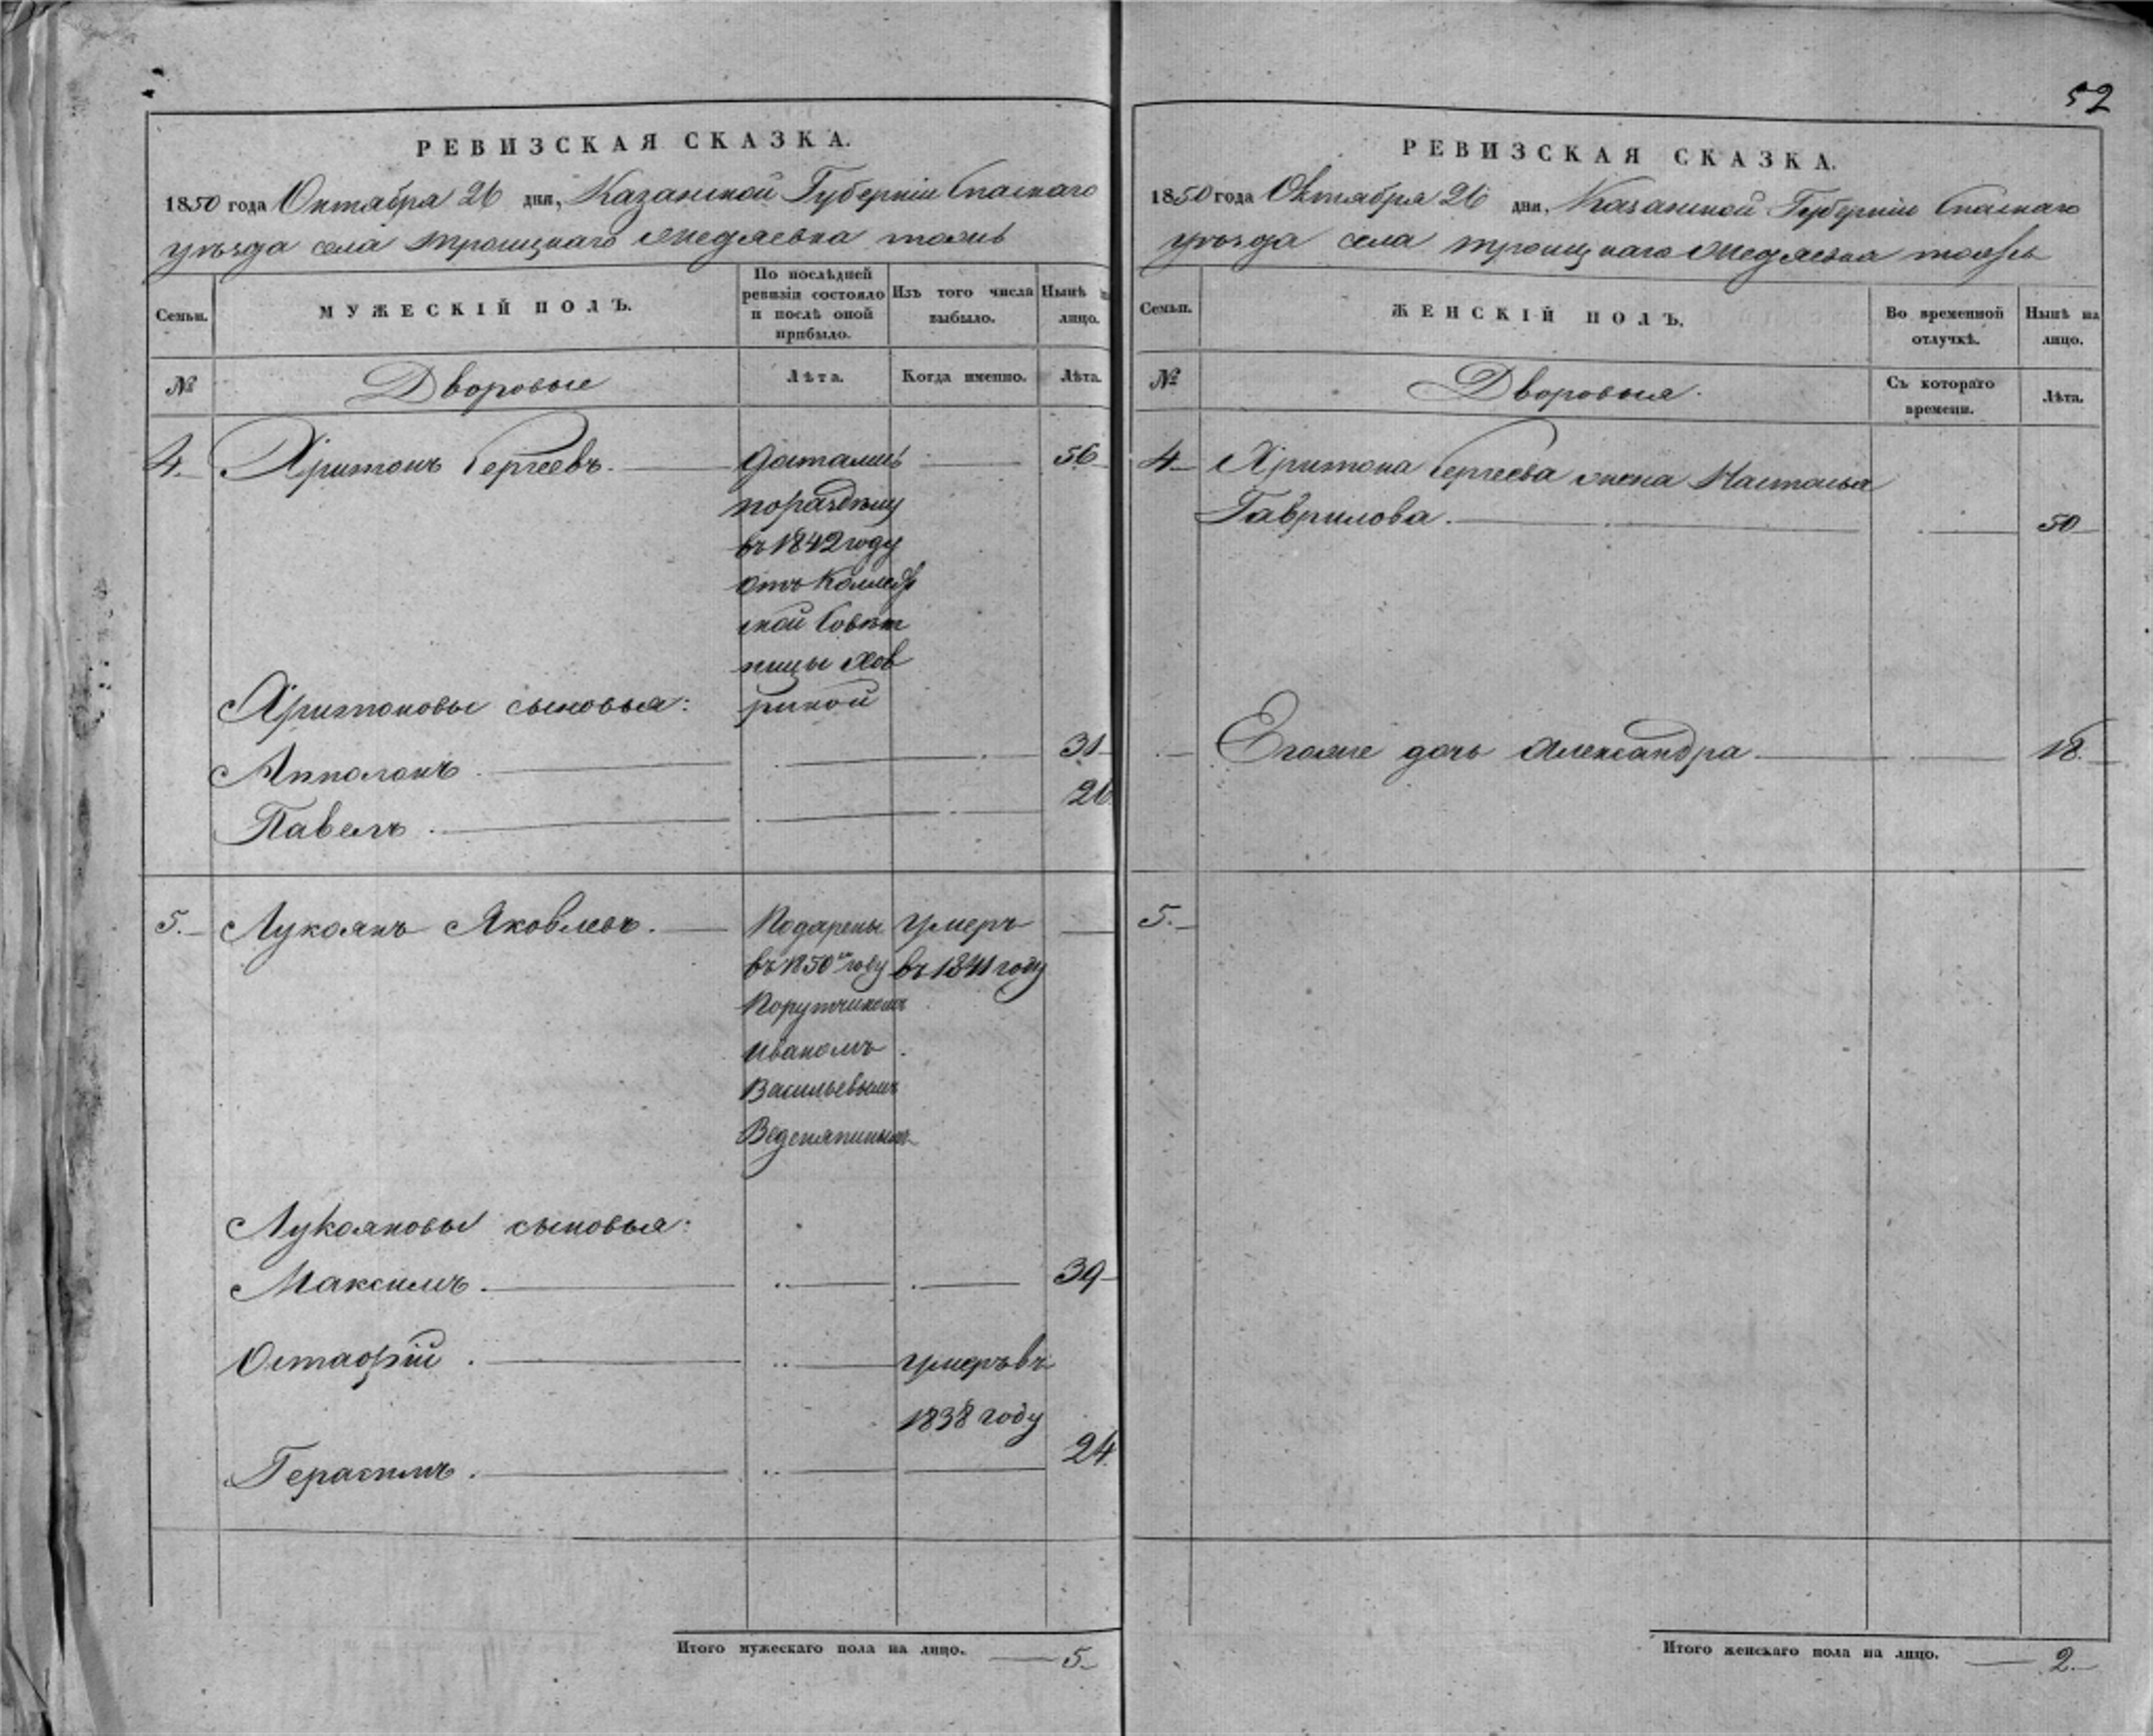 52
РЕВИЗСКАЯ СКАЗКА.
1850 года Октября 26 дня, Казанской Губерніи Спаскаго
уѣзда села Троицкаго тожъ
Семьи.
МУЖЕСКІЙ ПОЛЪ.
По послѣдней ревизіи состояло и послѣ оной прибыло.
Изъ того числа выбыло.
Нынѣ на лицо.
№
Дворовые
Лѣта.
Когда именно.
Лѣта.
4. Харитонъ Сергеевъ. 56
Достались
по раздѣлу
въ 1842 году
отъ Коллеж
ской Совѣт
ницы Хов
риной
Харитоновы сыновья:
Апполонъ. 31
Павелъ. 26
5. Лукоянъ Яковлевъ.
Подарены
въ 1850 году
Порутчикомъ
Иваномъ
Васильевымъ
Веденяпинымъ
умеръ
въ 1841 году
Лукояновы сыновья:
Максимъ. 39
Остафій. умеръ въ
1838 году
Герасимъ. 24
Итого мужескаго пола на лицо. 5
РЕВИЗСКАЯ СКАЗКА.
1850 года Октября 26 дня, Казанской Губерніи Спаскаго
уѣзда села Троицкаго тожъ
Семьи.
ЖЕНСКІЙ ПОЛЪ.
Во временной отлучкѣ.
Нынѣ на лицо.
№
Дворовыя.
Съ котораго времени.
Лѣта.
4 Харитона Сергеева жена Настасья
Гаврилова. 50
Егоже дочь Александра. 18.
5.
Итого женскаго пола на лицо. 2